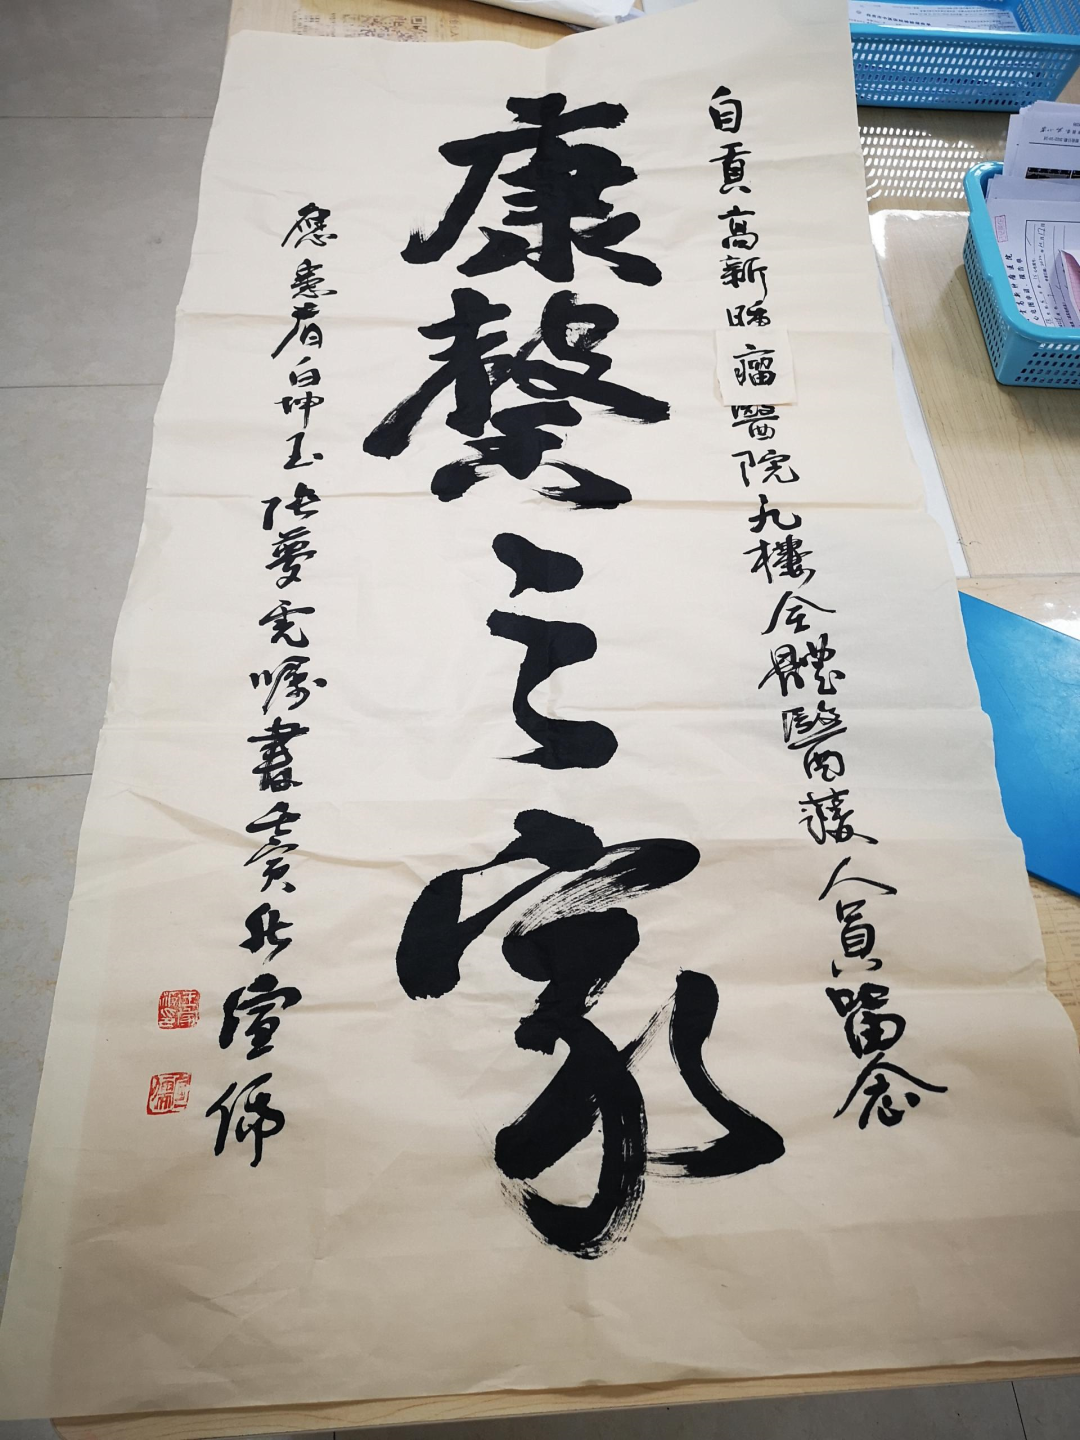 自貢高新腫瘤醫院九樓全體醫護人員留念
康馨之家
應患者白坤玉張夢雲囑書壬寅秋